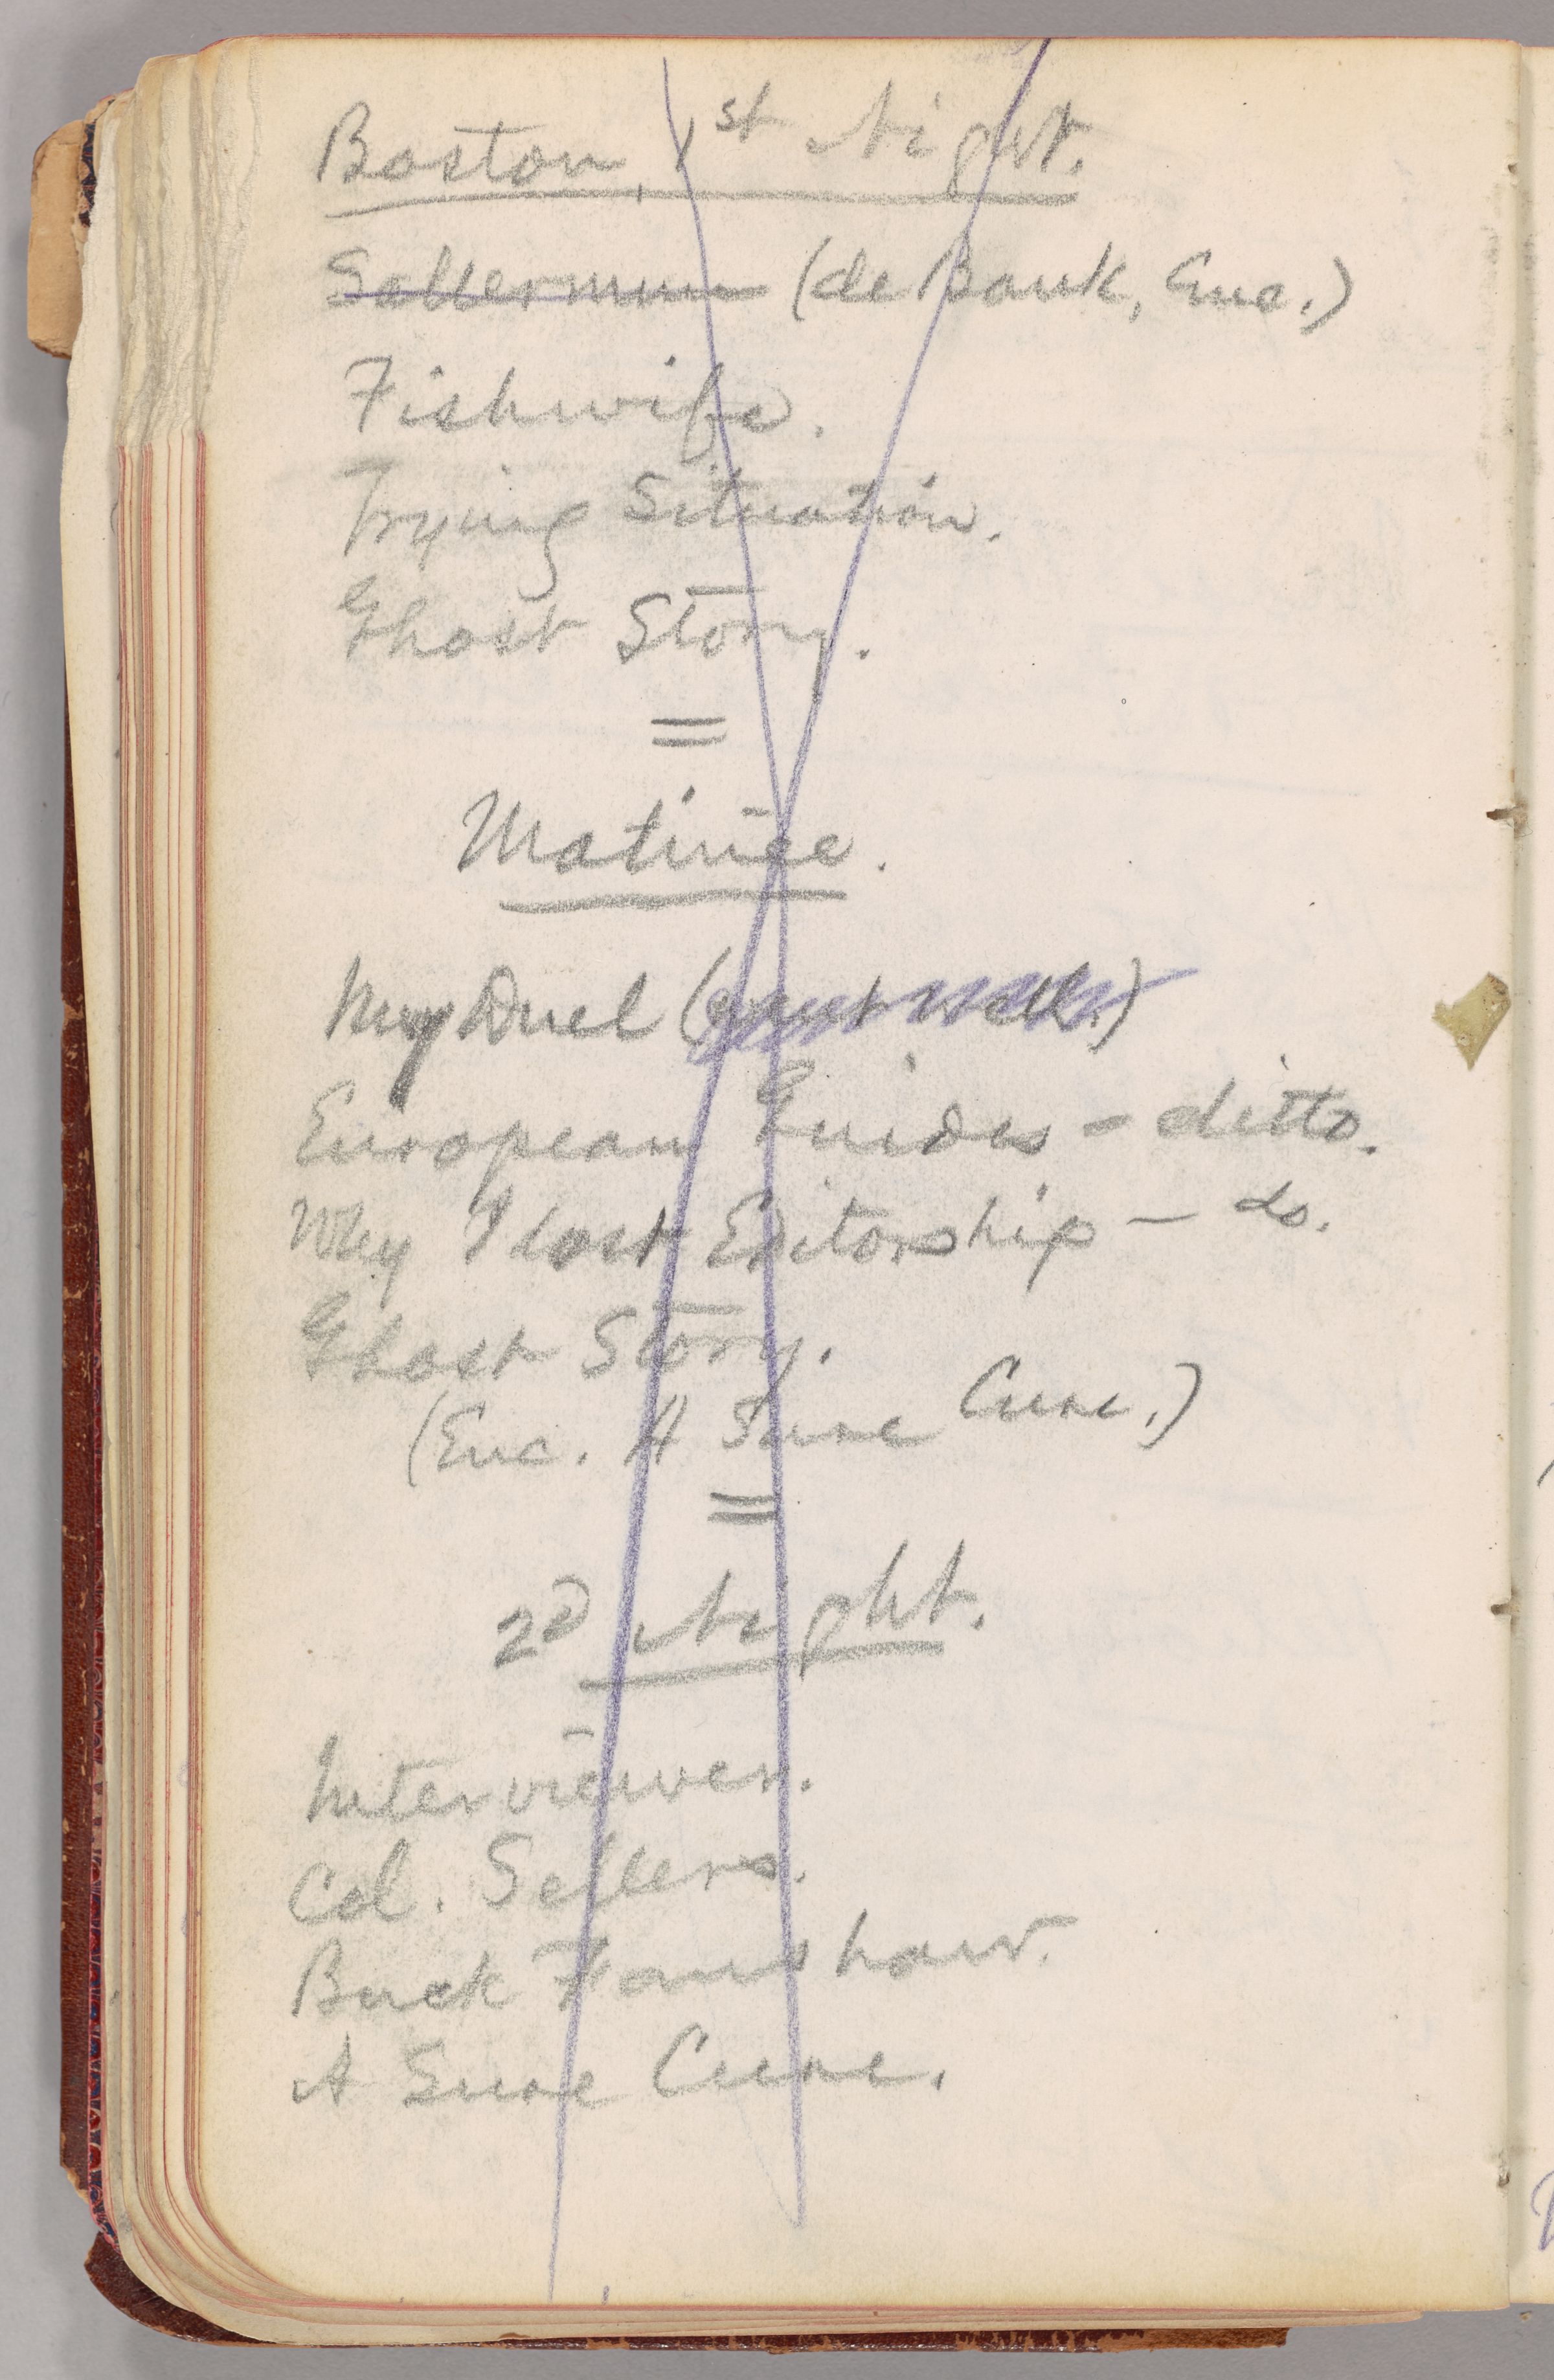 Boston, 1st Night.
Sollermun (de Bank, Enc.)
Fishwife.
Trying Situation.
Ghost Story.
=
Matinée.
My Duel (
European Guides – ditto.
Why I lost Editorship – do.
Ghost Story.
(Enc. A Sure Cure.)
=
2d Night.
Interviewer.
Col. Sellers.
Buck Fanshaw.
A Sure Cure.